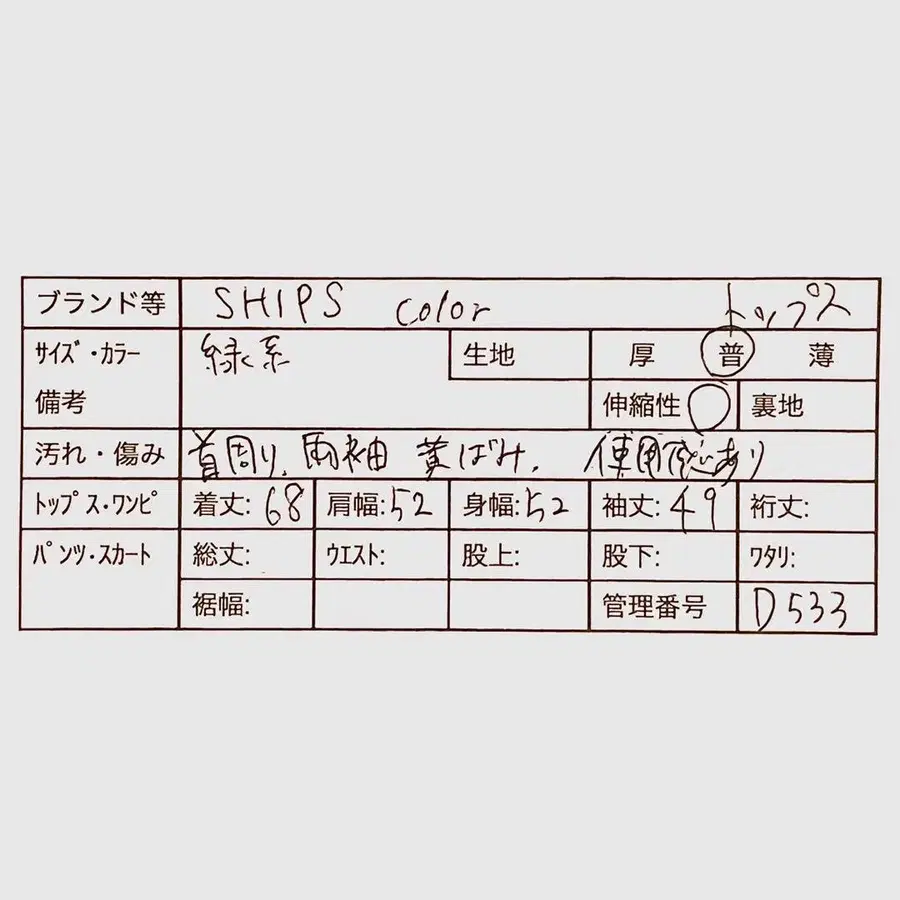 ブランド等 SHIPS color トップス
サイズ・カラー 緑系 生地 厚 普 薄
備考 伸縮性 ○ 裏地
汚れ・傷み 首周り、両袖 黄ばみ、使用感あり
トップス・ワンピ 着丈: 68 肩幅: 52 身幅: 52 袖丈: 49 裄丈:
パンツ・スカート 総丈: ウエスト: 股上: 股下: ワタリ:
裾幅: 管理番号 D533